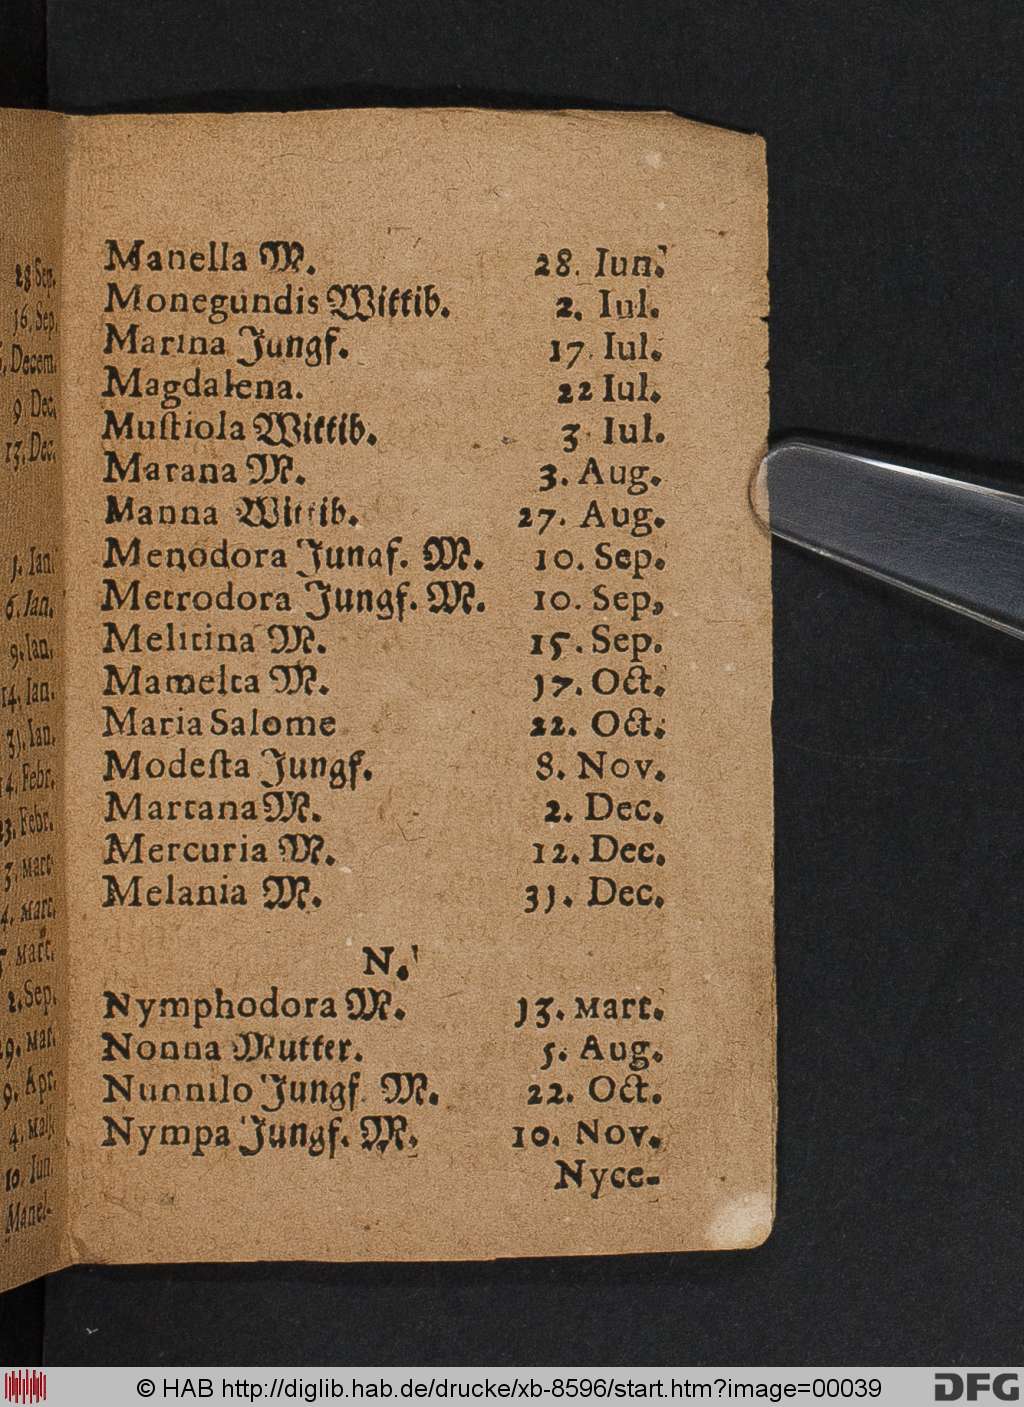 28 Sep.
16. Sep.
Decem.
9 Dec.
13. Dec.
1. Ian.
6. Ian.
9. Ian.
14. Ian.
31. Ian.
14. Febr.
23. Febr.
3. Mart
4. Mart.
Mart.
2. Sep.
Mar.
9. Apr.
4. Maij.
10. Iun.
Manel-
Manella M. 28. Iun.
Monegundis Wittib. 2. Iul.
Marina Jungf. 17. Iul.
Magdalena. 22 Iul.
Muſtiola Wittib. 3. Iul.
Marana M. 3. Aug.
Manna Wittib. 27. Aug.
Menodora Jungf. M. 10. Sep.
Metrodora Jungf. M. 10. Sep,
Melitina M. 15. Sep.
Mamelta M. 17. Oct.
Maria Salome 22. Oct.
Modeſta Jungf. 8. Nov.
Martana M. 2. Dec.
Mercuria M. 12. Dec.
Melania M. 31. Dec.
N.
Nymphodora M. 13. Mart.
Nonna Mutter. 5. Aug.
Nunnilo Jungf. M. 22. Oct.
Nympa Jungf. M. 10. Nov.
Nyce-
© HAB http://diglib.hab.de/drucke/xb-8596/start.htm?image=00039
DFG